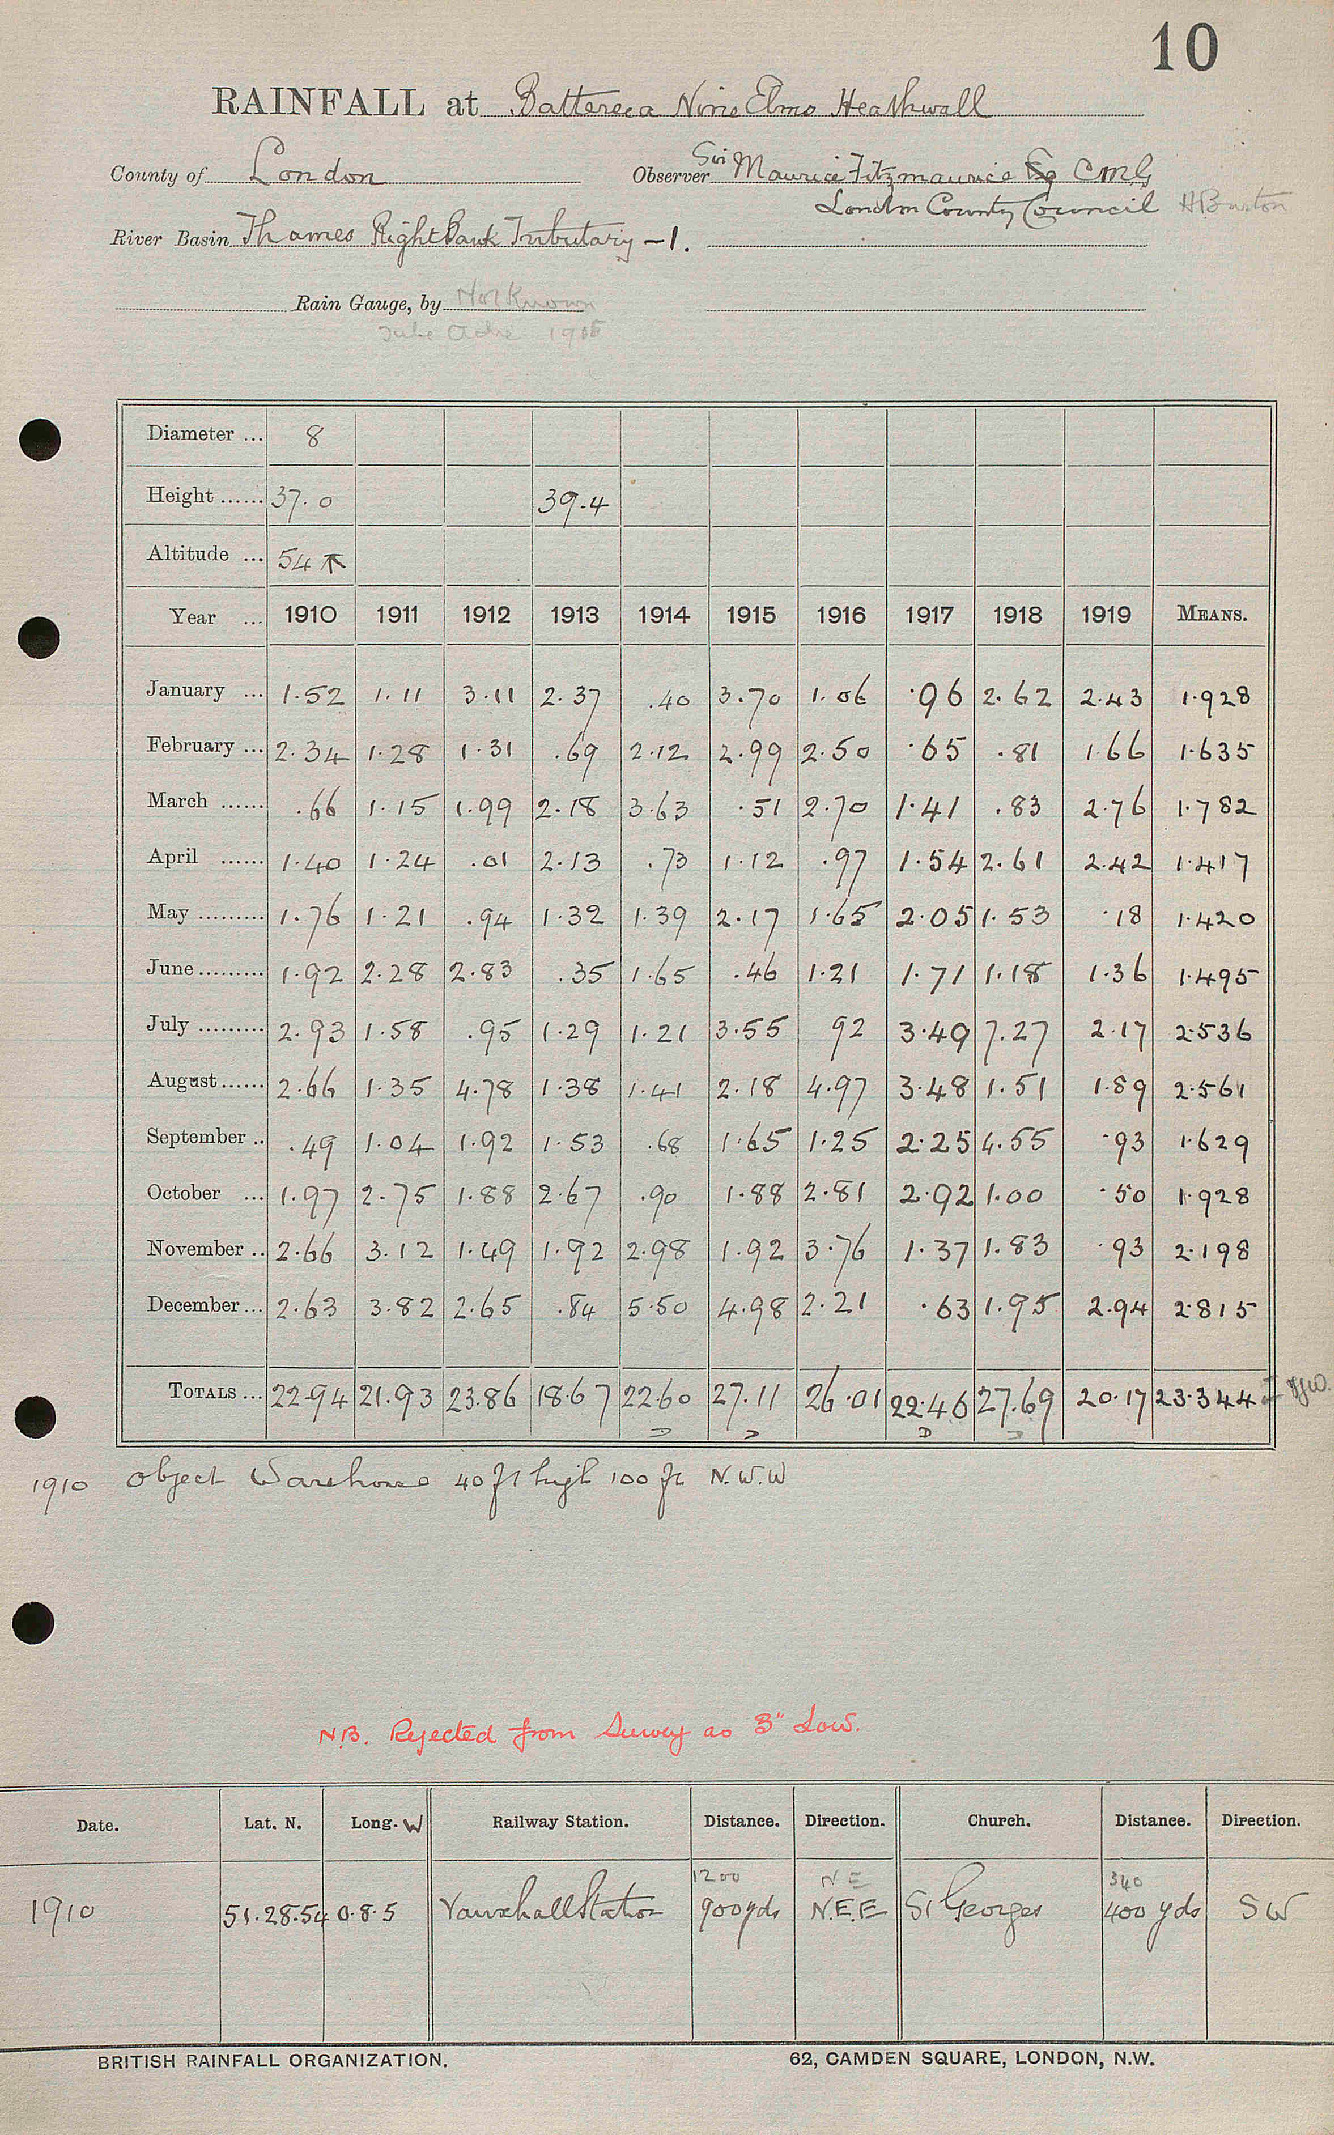 10
RAINFALL at Battersea Nine Elms Heathwall
County of London Observer Sir Maurice Fitzmaurice Esq CMG
London County Council H Burton
River Basin Thames Right Bank Tributary - 1.
Rain Gauge, by Not Known
1905
Diameter ... 8
Height ...... 37.0 39.4
Altitude ... 54
Year ... 1910 1911 1912 1913 1914 1915 1916 1917 1918 1919 MEANS.
January ... 1.52 1.11 3.11 2.37 .40 3.70 1.06 .96 2.62 2.43 1.928
February ... 2.34 1.28 1.31 .69 2.12 2.99 2.50 .65 .81 1.66 1.635
March ...... .66 1.15 1.99 2.18 3.63 .51 2.70 1.41 .83 2.76 1.782
April ...... 1.40 1.24 .01 2.13 .73 1.12 .97 1.54 2.61 2.42 1.417
May ......... 1.76 1.21 .94 1.32 1.39 2.17 1.65 2.05 1.53 .18 1.420
June ......... 1.92 2.28 2.83 .35 1.65 .46 1.21 1.71 1.18 1.36 1.495
July ......... 2.93 1.58 .95 1.29 1.21 3.55 92 3.49 7.27 2.17 2.536
August ...... 2.66 1.35 4.78 1.38 1.41 2.18 4.97 3.48 1.51 1.89 2.561
September .. .49 1.04 1.92 1.53 .68 1.65 1.25 2.25 4.55 .93 1.629
October ... 1.97 2.75 1.88 2.67 .90 1.88 2.81 2.92 1.00 .50 1.928
November .. 2.66 3.12 1.49 1.92 2.98 1.92 3.76 1.37 1.83 .93 2.198
December ... 2.63 3.82 2.65 .84 5.50 4.98 2.21 .63 1.95 2.94 2.815
TOTALS ... 22.94 21.93 23.86 18.67 22.60 27.11 26.01 22.46 27.69 20.17 23.344
D D D D
1910 Object Warehouse 40 ft high 100 ft N.W.W
N.B. Rejected from Survey as 3" Low.
Date. Lat. N. Long. W Railway Station. Distance. Direction. Church. Distance. Direction.
1200 NE 340
1910 51.28.54 0.8.5 Vauxhall Station 900 yds N.E.E St Georges 400 yds SW
BRITISH RAINFALL ORGANIZATION. 62, CAMDEN SQUARE, LONDON, N.W.